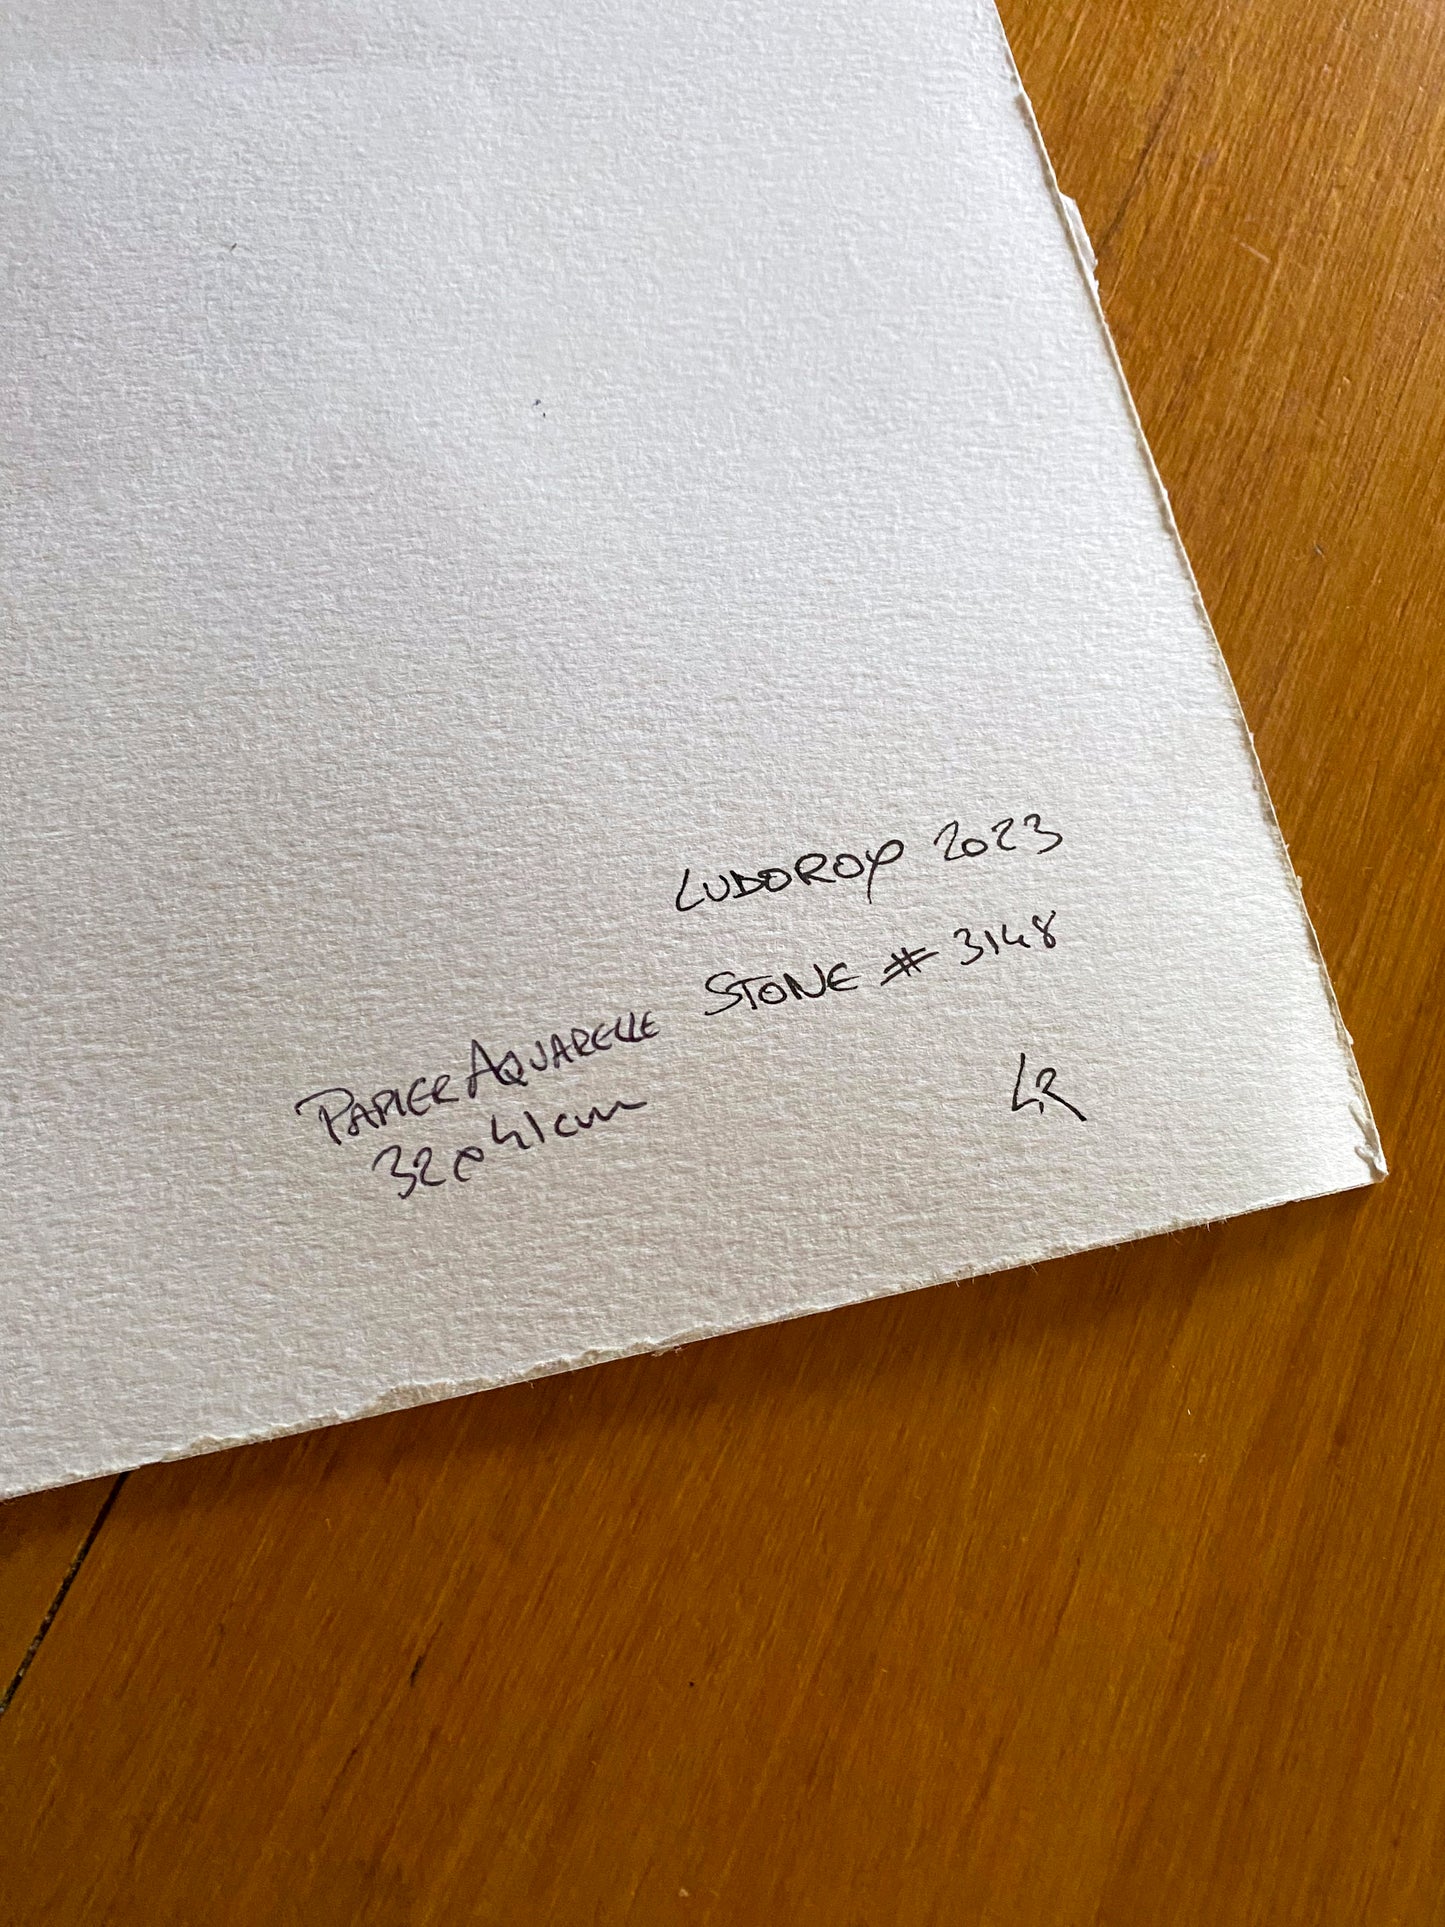 LUDOROY 2023
STONE # 3148
PAPIER AQUARELLE
32x41cm
LR